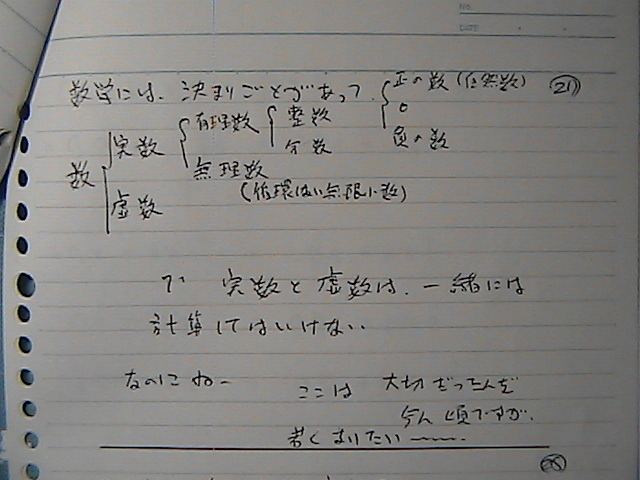 NO.
DATE
数学には、決まりごとがあって、
21
数 { 実数 { 有理数 { 整数 { 正の数 (自然数)
0
負の数
分数
無理数
(循環しない無限小数)
虚数
で 実数と虚数は、一緒には
計算してはいけない。
なのにねー
ここは 大切だってんだ
今ん頃ですが、
若くなりたい〜〜〜。